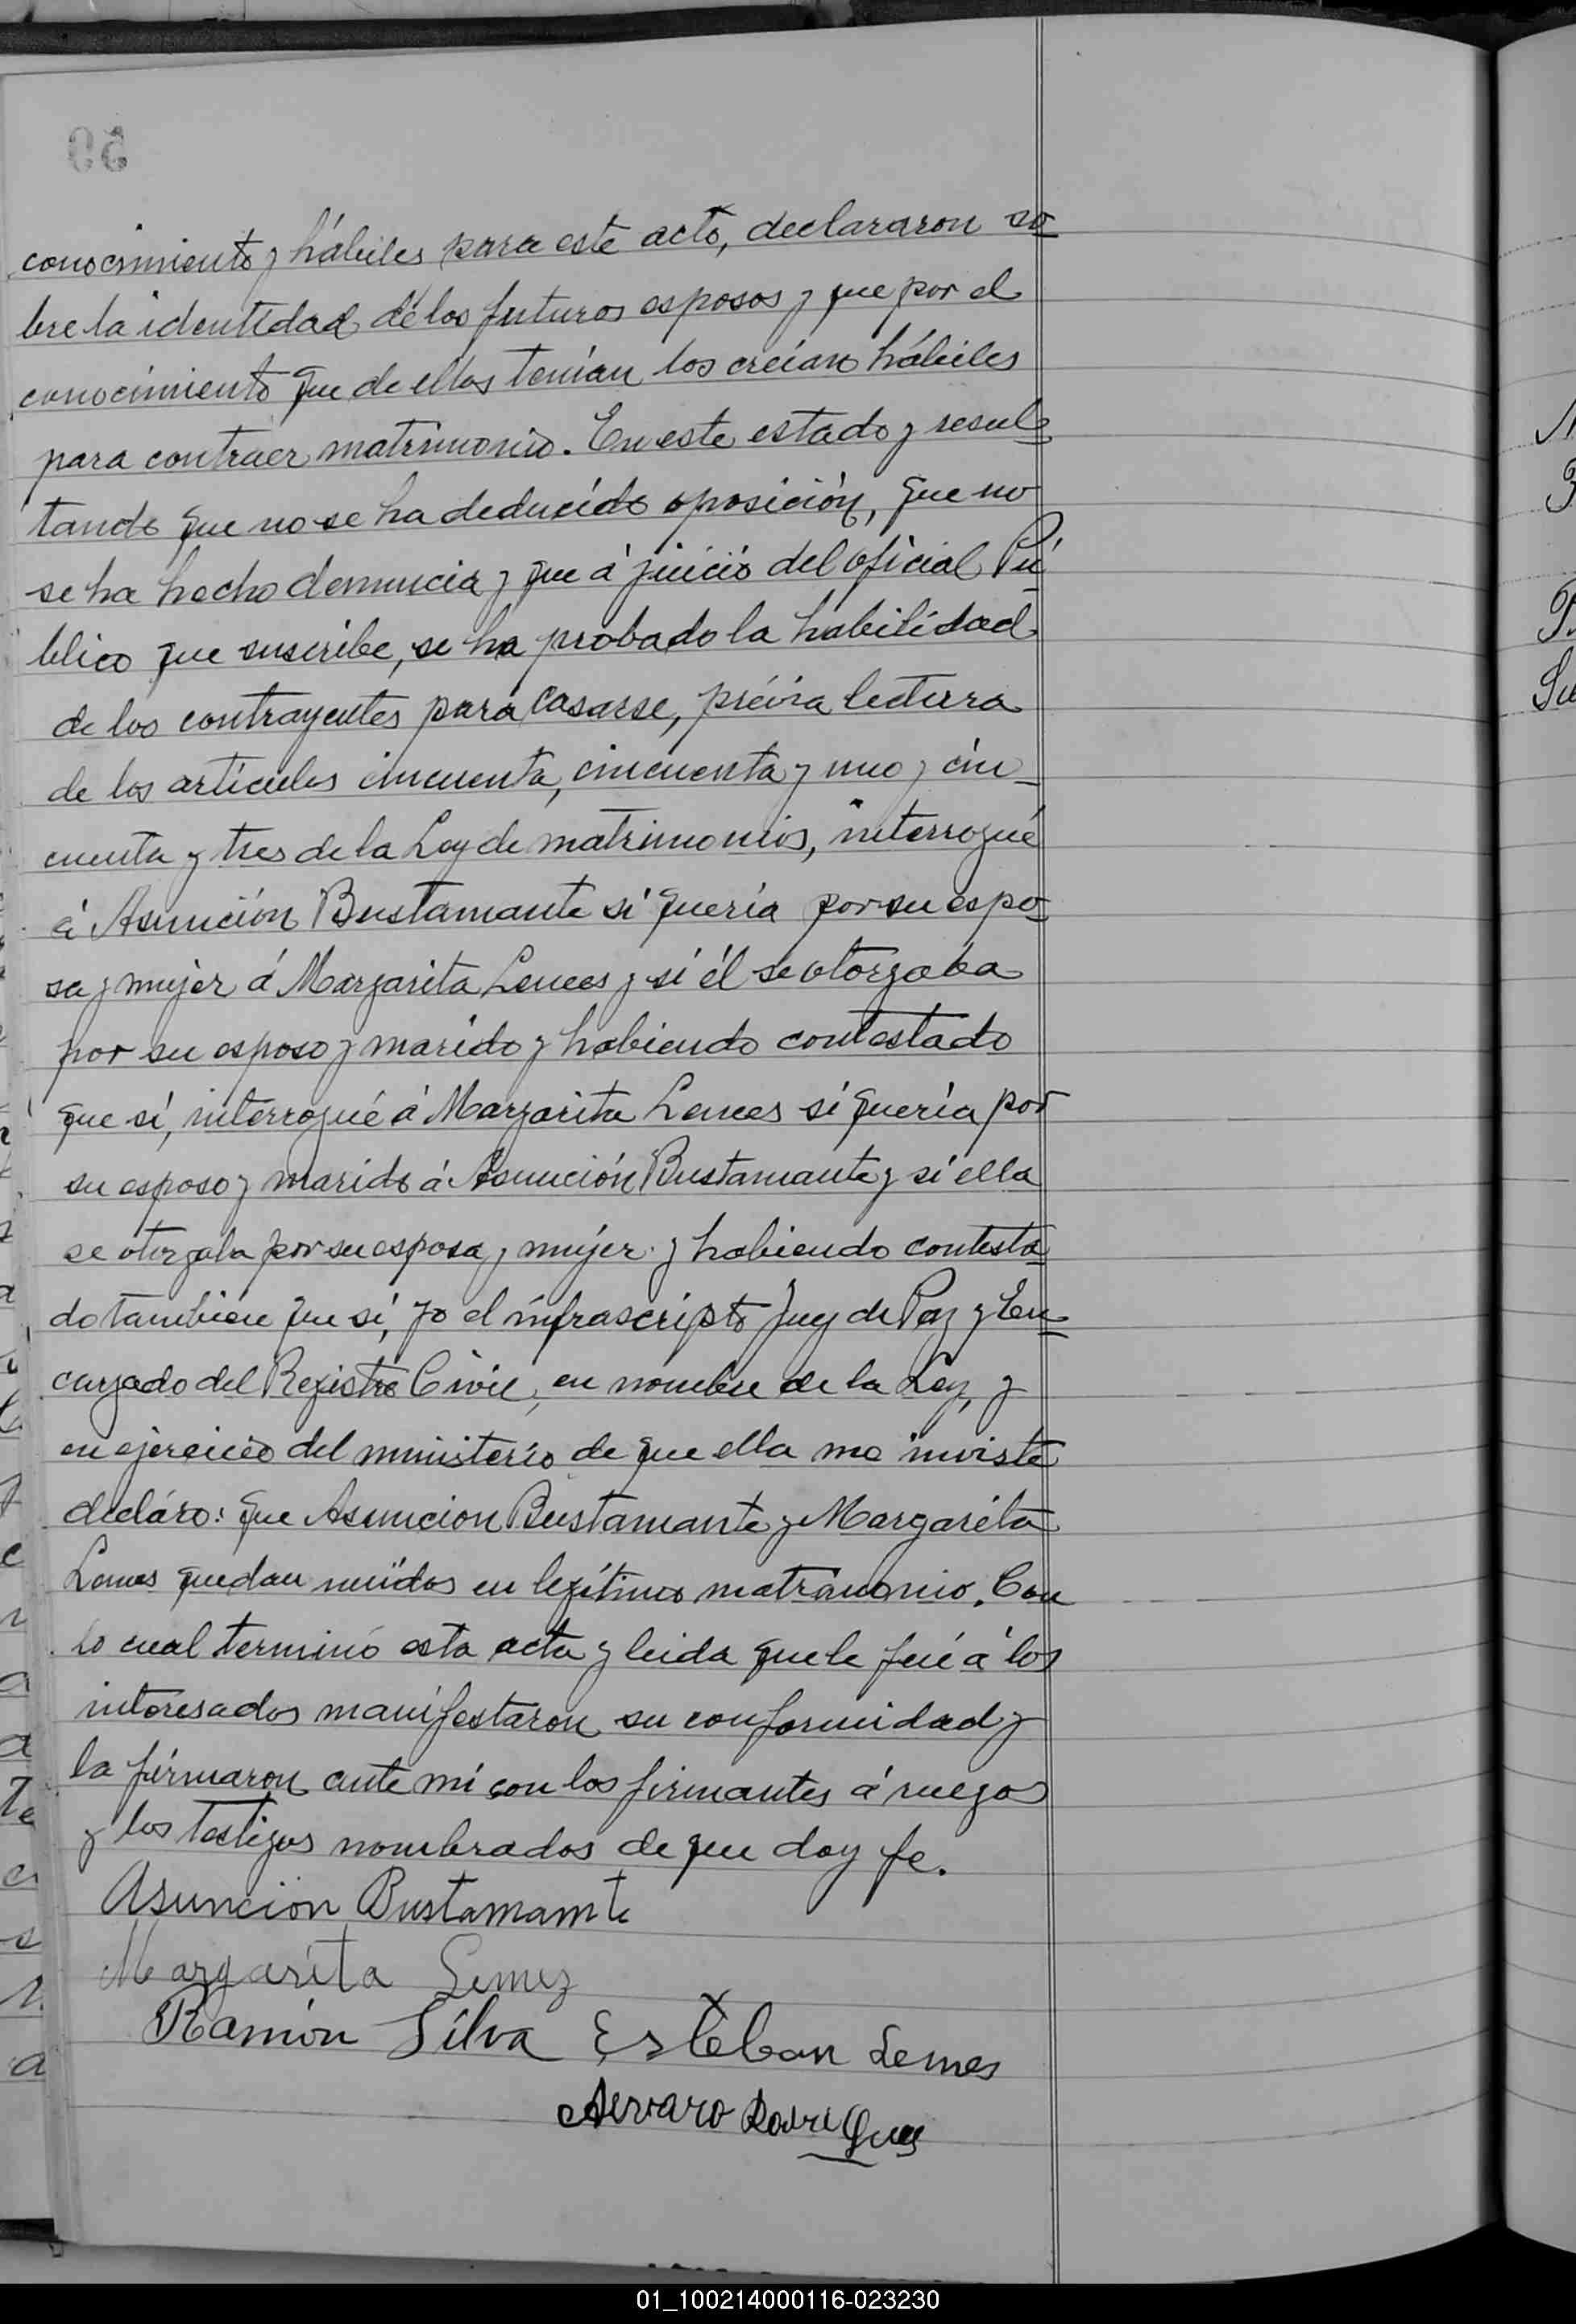 conocimiento y hábiles para este acto, declararon so-
bre la identidad de los futuros esposos y que por el
conocimiento que de ellos tenían los creían hábiles
para contraer matrimonio. En este estado y resul-
tando que no se ha deducido oposición, que no
se ha hecho denuncia y que á juicio del oficial Pú-
blico que suscribe, se ha probado la habilidad
de los contrayentes para casarse, prévia lectura
de los artículos cincuenta, cincuenta y uno y cin-
cuenta y tres de la Ley de matrimonios, interrogué
á Asunción Bustamante si quería por su espo-
sa y mujer á Margarita Lemes y si él se otorgaba
por su esposo y marido y habiendo contestado
que sí, interrogué á Margarita Lemes si quería por
su esposo y marido á Asunción Bustamante y si ella
se otorgaba por su esposa y mujer y habiendo contesta-
do también que sí, yo el infrascripto Juez de Paz y En-
cargado del Registro Civil, en nombre de la Ley, y
en ejercicio del ministerio de que ella me inviste
decláro: que Asuncion Bustamante y Margarita
Lemes quedan unidos en legítimo matrimonio. Con
lo cual terminó esta acta y leida que le fué á los
interesados manifestaron su conformidad y
la firmaron ante mí con los firmantes á ruegos
y los testigos nombrados de que doy fe.
Asuncion Bustamamte
Margarita Lemez
Ramón Silva Esteban Lemes
Alvaro Rodriguez
01_100214000116-023230